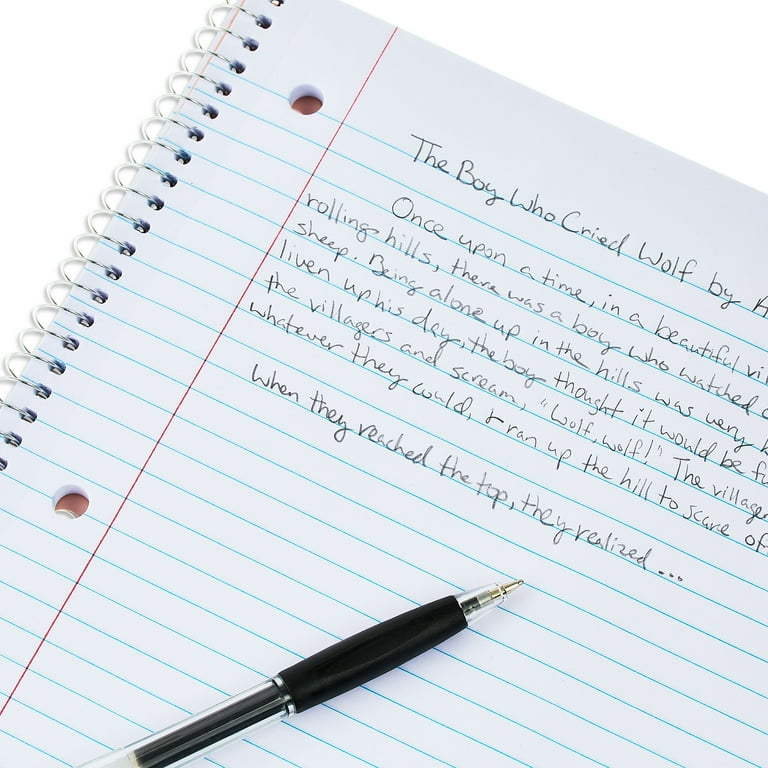 The Boy Who Cried Wolf by
Once upon a time, in a beautiful
rolling hills, there was a boy who watched
sheep. Being alone up in the hills was very
liven up his day, the boy thought it would be
the villagers and scream, "Wolf, wolf!" The
whatever they could, & ran up the hill to scare
When they reached the top, they realized ...